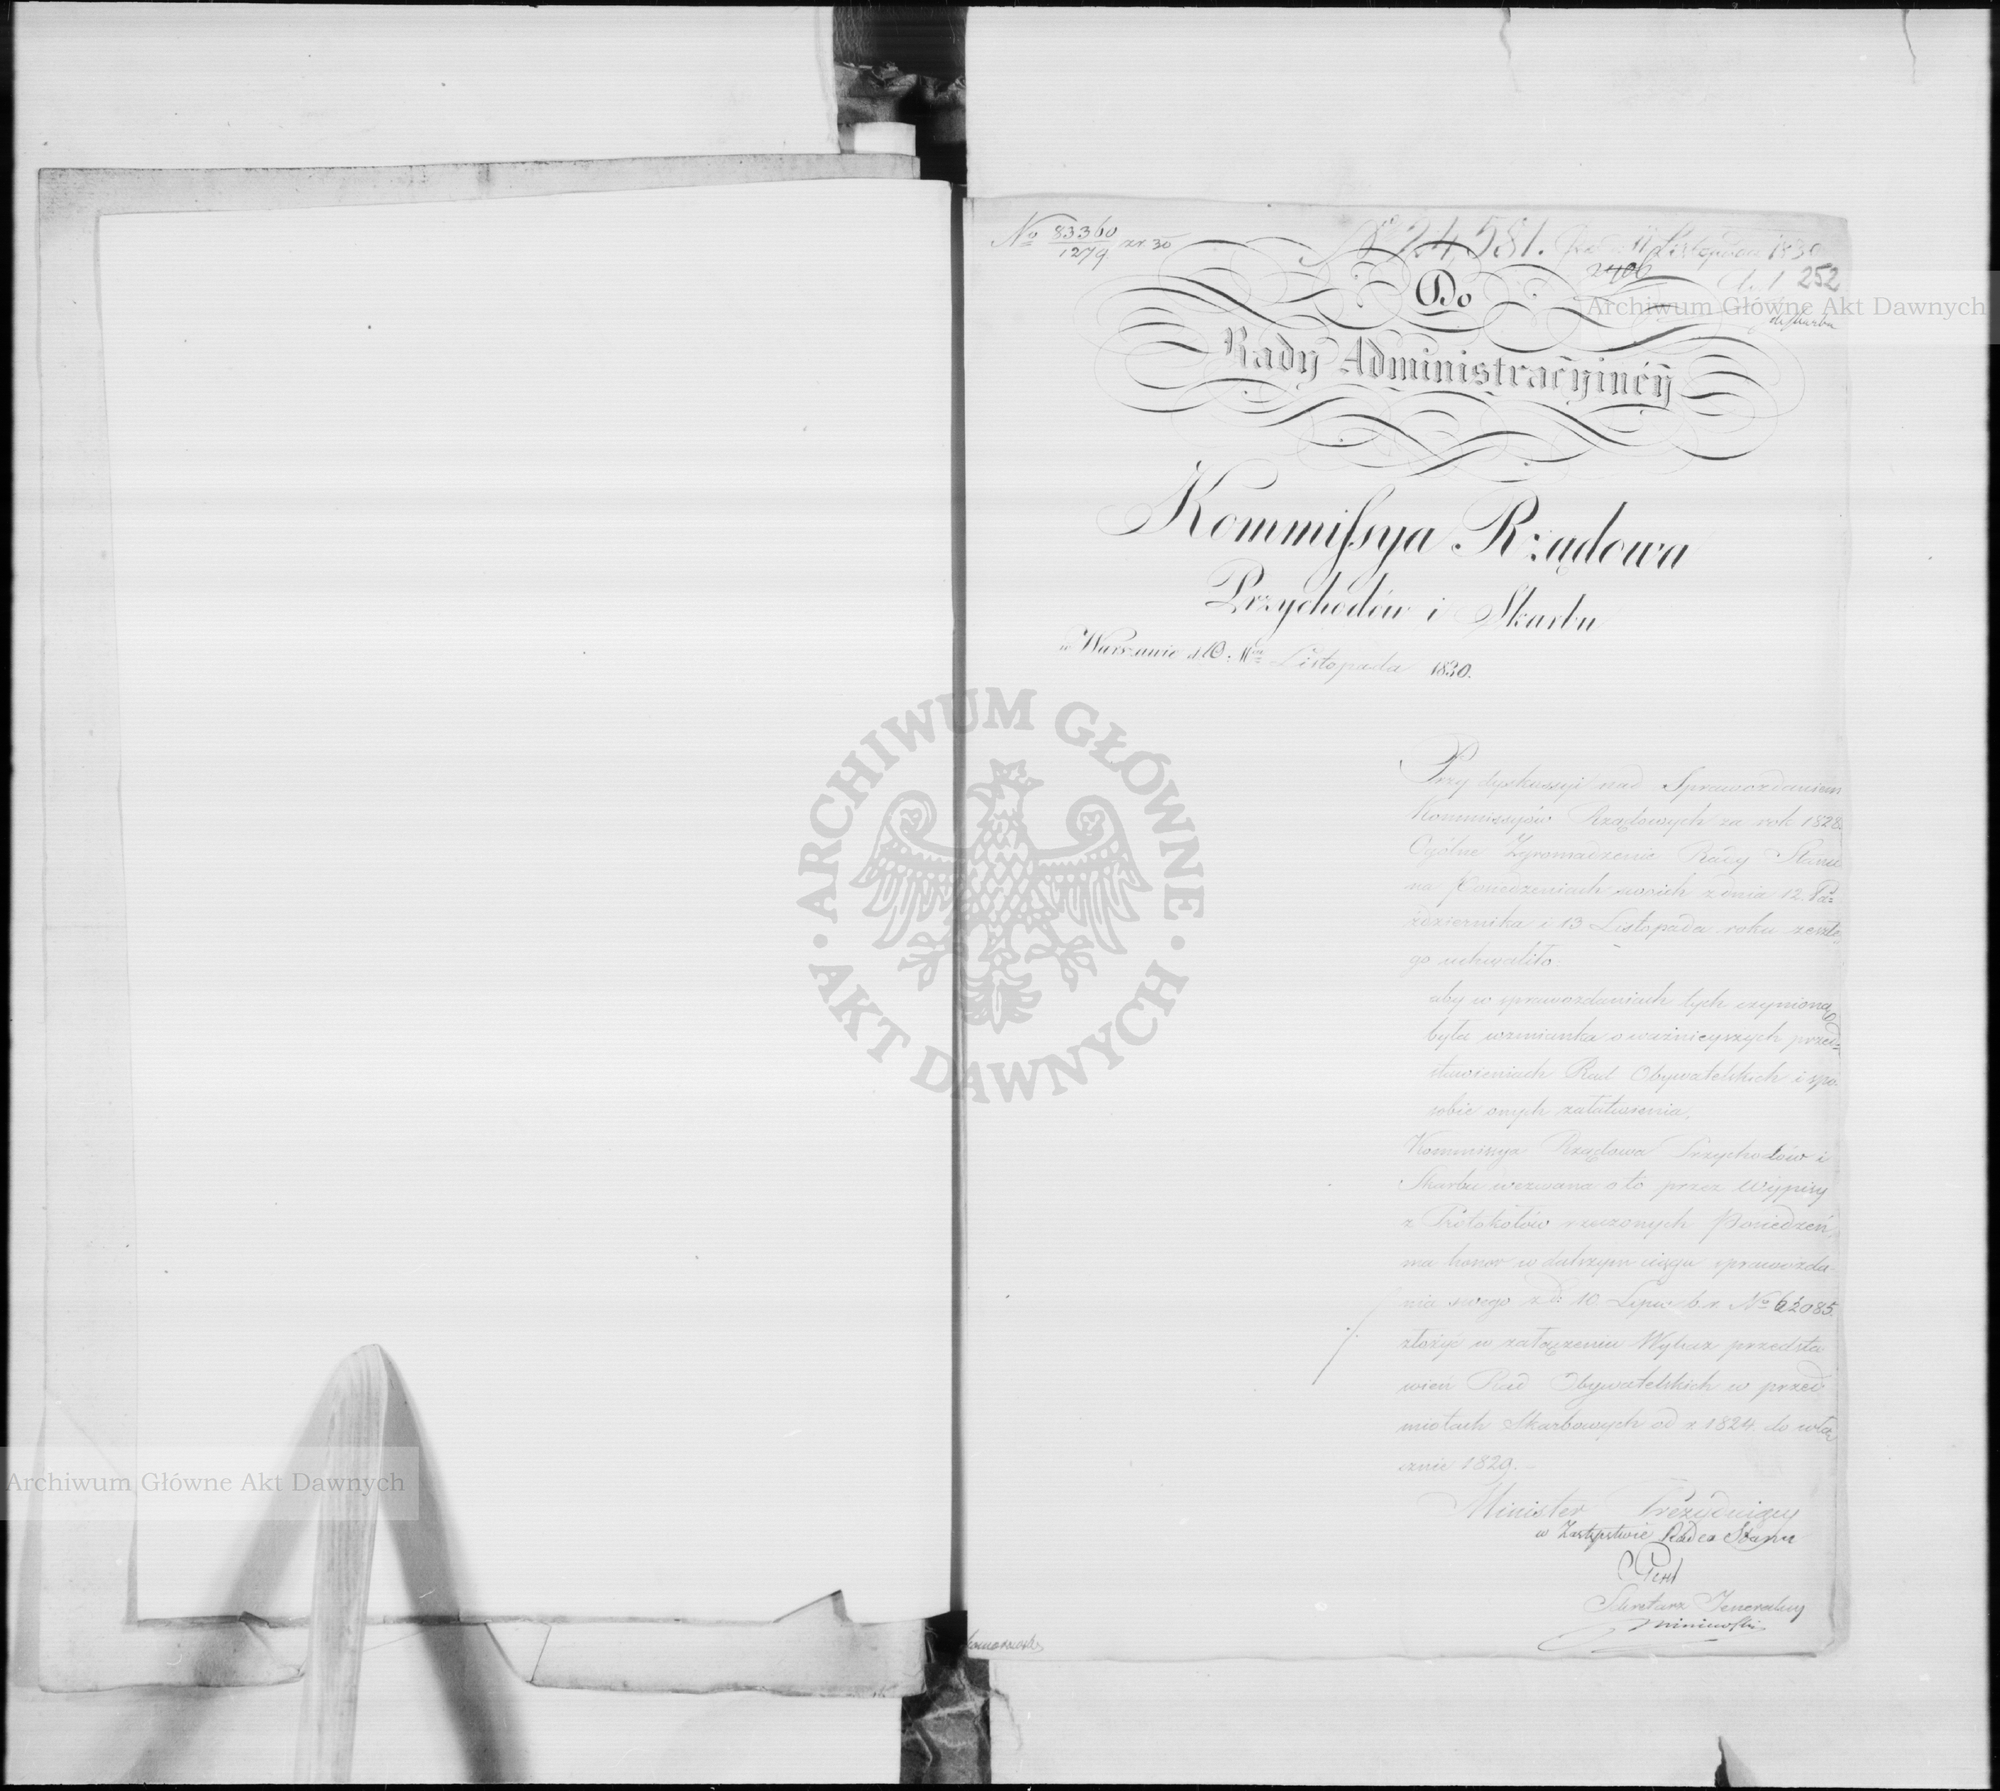 No 83360/1279 zr 30
No 24,581. Listopada 1830
2406
252
do Skarbu
Do
Rady Administracyinéy
Kommissya Rządowa
Przychodów i Skarbu
w Warszawie d. 10. Mca Listopada 1830.
Przy dyskussyi nad Sprawozdaniem
Kommissyów Rządowych za rok 1828
Ogólne Zgromadzenie Rady Stanu
na Posiedzeniach swoich z dnia 12. Pa=
ździernika i 13 Listopada roku zeszłe-
go uchwaliło:
aby w sprawozdaniach tych czyniona
była wzmianka o ważnieyszych przed=
stawieniach Rad Obywatelskich i spo-
sobie onych załatwienia,
Kommissya Rządowa Przychodów i
Skarbu wezwana o to przez Wypisy
z Protokołów rzeczonych Posiedzeń,
ma honor w dalszym ciągu sprawozda-
nia swego z d: 10. Lipca b. r. No 62085.
złożyć w załączeniu Wykaz przedsta
wień Rad Obywatelskich w przed
miotach Skarbowych od r. 1824 do włą
cznie 1829.-
Minister Prezyduiący
w Zastępstwie Radca Stanu
Sekretarz Jeneralny
Archiwum Główne Akt Dawnych
ARCHIWUM GŁÓWNE
AKT DAWNYCH
Archiwum Główne Akt Dawnych